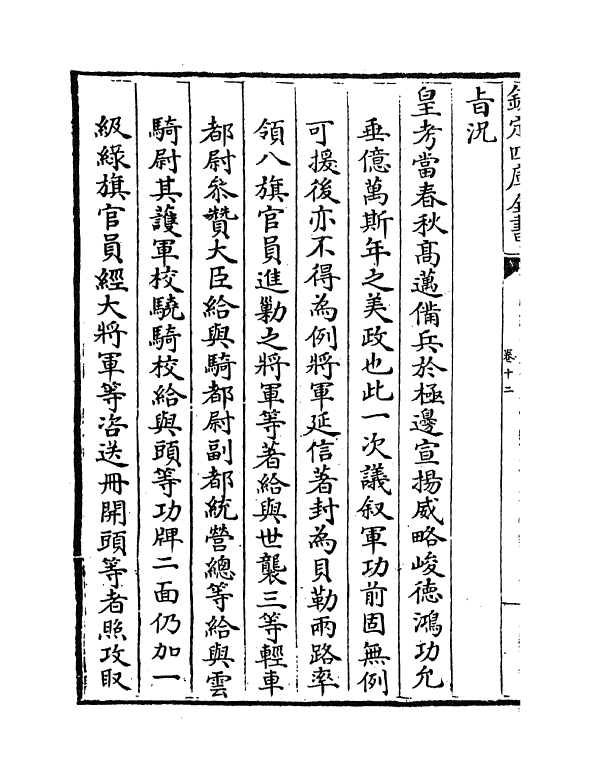 欽定四庫全書
卷十二
旨況
皇考當春秋高邁備兵於極邊宣揚威略峻德鴻功允
垂億萬斯年之美政也此一次議叙軍功前固無例
可援後亦不得為例將軍延信著封為貝勒兩路率
領八旗官員進勦之將軍等著給與世襲三等輕車
都尉叅贊大臣給與騎都尉副都統營總等給與雲
騎尉其護軍校驍騎校給與頭等功牌二面仍加一
級綠旗官員經大將軍等咨送冊開頭等者照攻取